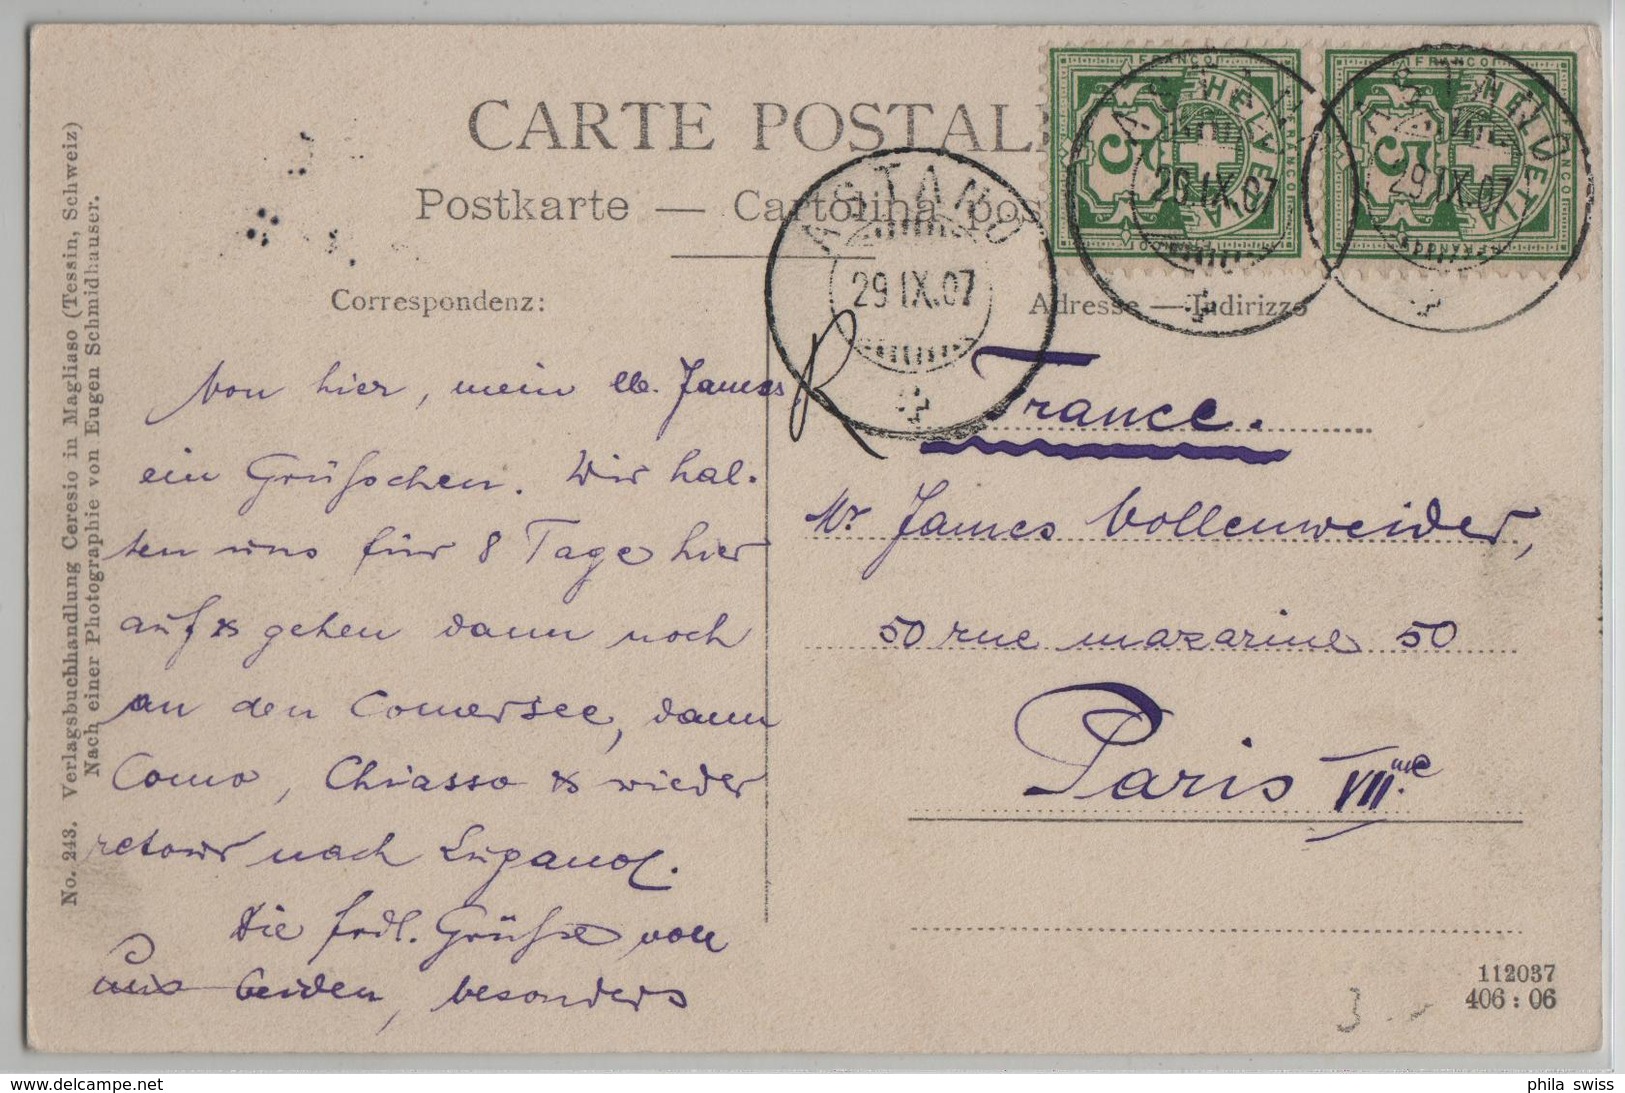 CARTE POSTAL
Postkarte — Cartolina pos
Correspondenz:
Adresse — Indirizzo
FRANCO
HELVETIA
5
FRANCO
HELVETIA
5
ASTANO
29.IX.07
ASTANO
29.IX.07
ASTANO
29.IX.07
No. 243. Verlagsbuchhandlung Ceresio in Magliaso (Tessin, Schweiz)
Nach einer Photographie von Eugen Schmidhauser.
Von hier, mein lb. James,
ein Grüsschen. Wir hal-
ten uns für 8 Tage hier
auf & gehen dann noch
an den Comersee, dann
Como, Chiasso & wieder
retour nach Lugano.
Die frdl. Grüsse von
uns beiden, besonders
France.
Mr James Vollenweider,
50 rue mazarine 50
Paris VII.me
112037
406 : 06
3.-
phila swiss